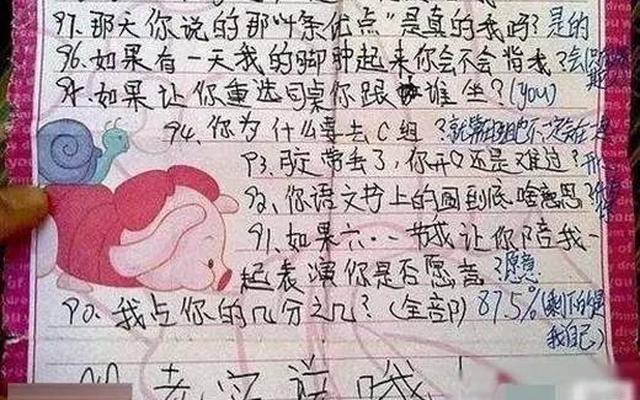 97.那天你说的那"4条优点"是真的我吗?是的
96.如果有一天我的脚肿起来你会不会背我?会
95.如果让你重选同桌你跟谁坐?(you)
94.你为什么要去C组?就算在B组也不一定在一起
93.定带丢了,你开心还是难过?
92.你语文书上的图到底啥意思?
91.如果六·一节我让你陪我一
起表演你是否愿意?愿意
90.我占你的几分之几?(全部)87.5%(剩下的是
我自己)
老实说哦